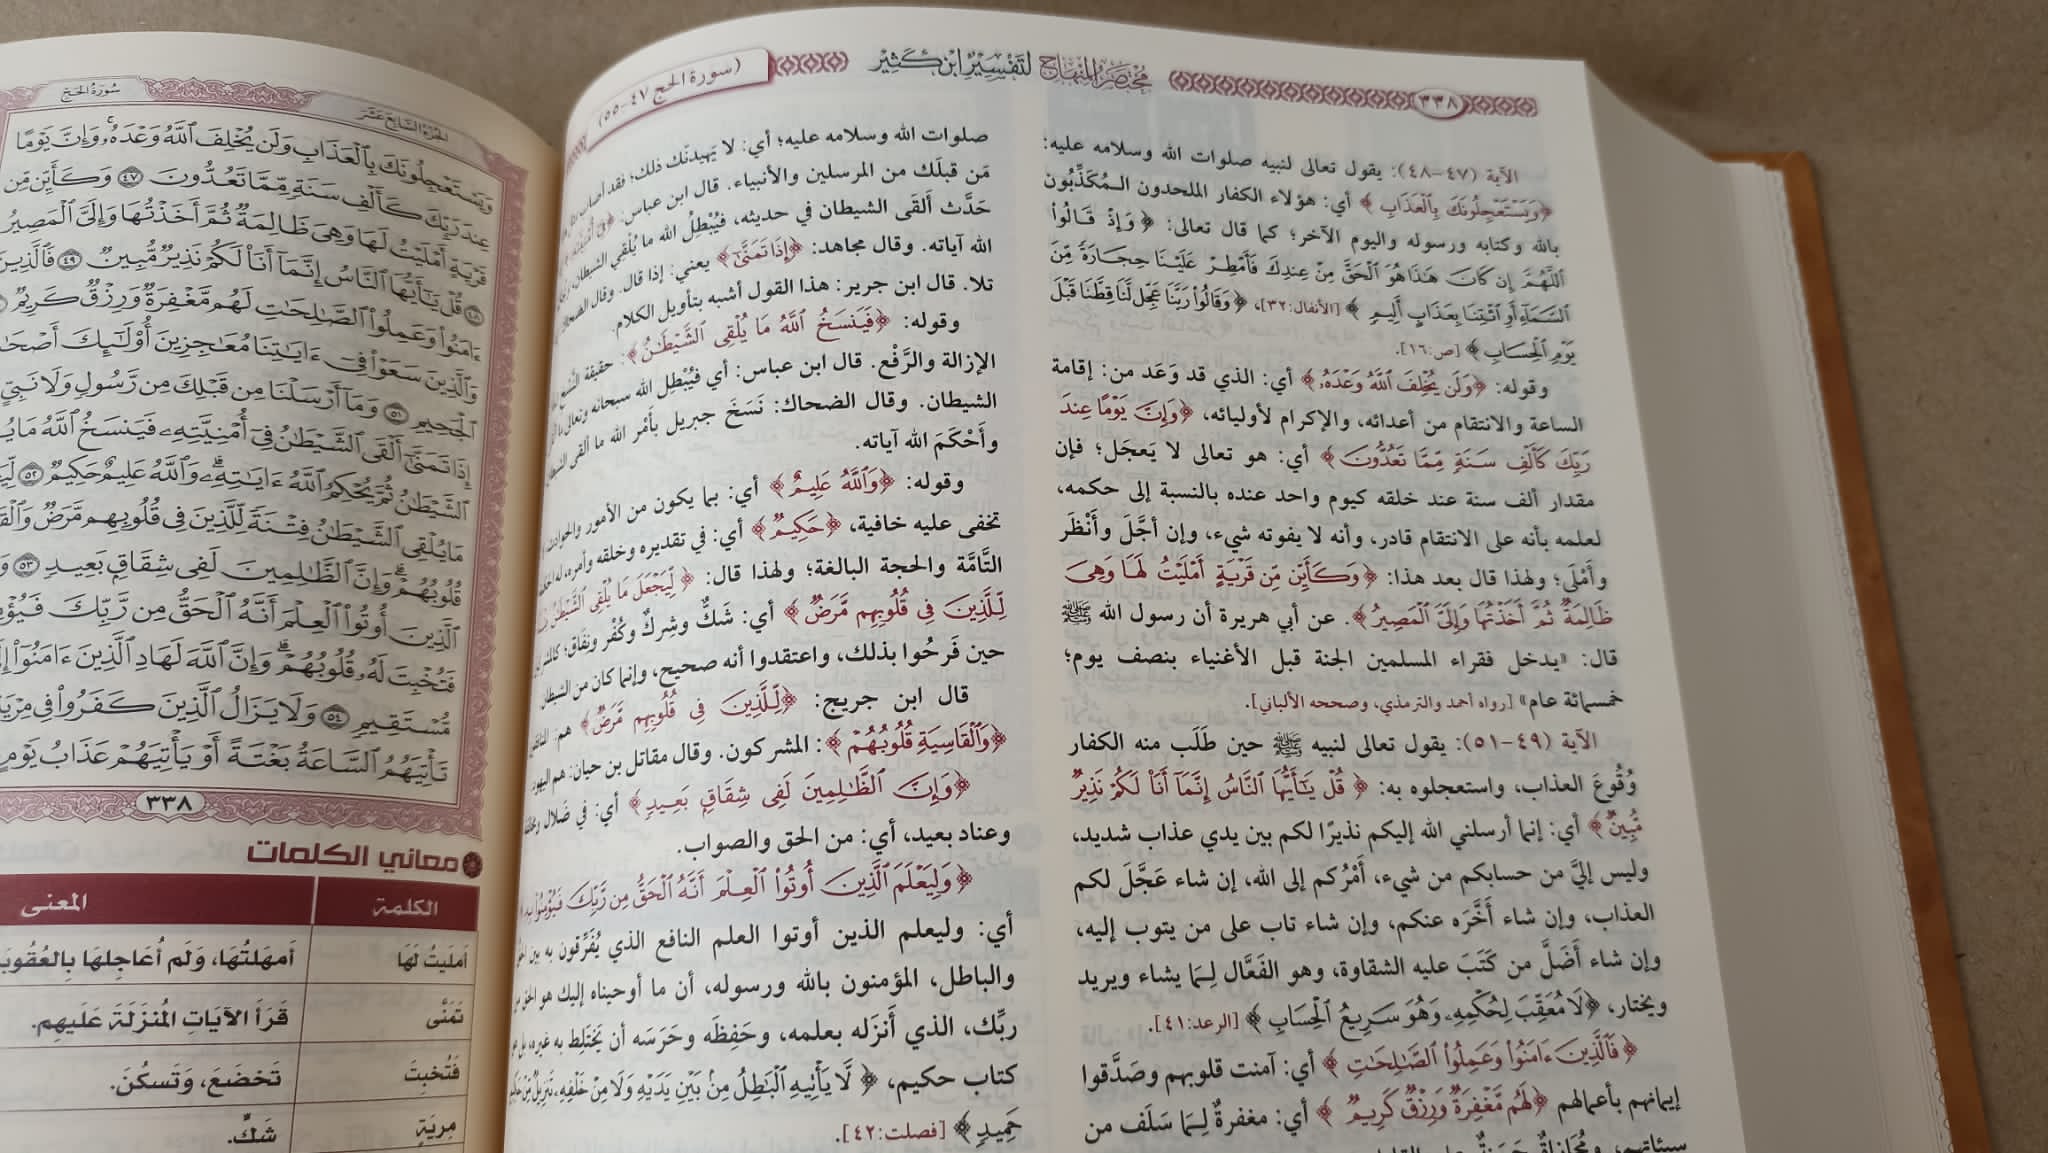 ٣٣٨
مختصر المنهاج لتفسير ابن كثير
(سورة الحج ٤٧-٥٥)
الآية (٤٧-٤٨): يقول تعالى لنبيه صلوات الله وسلامه عليه:
﴿وَيَسْتَعْجِلُونَكَ بِالْعَذَابِ﴾ أي: هؤلاء الكفار الملحدون المُكَذِّبُون
بالله وكتابه ورسوله واليوم الآخر؛ كما قال تعالى: ﴿وَإِذْ قَالُوا
اللَّهُمَّ إِن كَانَ هَذَا هُوَ الْحَقَّ مِنْ عِندِكَ فَأَمْطِرْ عَلَيْنَا حِجَارَةً مِّنَ
السَّمَاءِ أَوِ ائْتِنَا بِعَذَابٍ أَلِيمٍ﴾ [الأنفال:٣٢]، ﴿وَقَالُوا رَبَّنَا عَجِّل لَّنَا قِطَّنَا قَبْلَ
يَوْمِ الْحِسَابِ﴾ [ص:١٦].
وقوله: ﴿وَلَن يُخْلِفَ اللَّهُ وَعْدَهُ﴾ أي: الذي قد وَعَد من: إقامة
الساعة والانتقام من أعدائه، والإكرام لأوليائه، ﴿وَإِنَّ يَوْمًا عِندَ
رَبِّكَ كَأَلْفِ سَنَةٍ مِّمَّا تَعُدُّونَ﴾ أي: هو تعالى لا يَعجَل؛ فإن
مقدار ألف سنة عند خلقه كيوم واحد عنده بالنسبة إلى حكمه،
لعلمه بأنه على الانتقام قادر، وأنه لا يفوته شيء، وإن أجَّلَ وأَنْظَر
وأَمْلَى؛ ولهذا قال بعد هذا: ﴿وَكَأَيِّن مِّن قَرْيَةٍ أَمْلَيْتُ لَهَا وَهِيَ
ظَالِمَةٌ ثُمَّ أَخَذْتُهَا وَإِلَيَّ الْمَصِيرُ﴾. عن أبي هريرة أن رسول الله ﷺ
قال: «يدخل فقراء المسلمين الجنة قبل الأغنياء بنصف يوم؛
خمسمائة عام» [رواه أحمد والترمذي، وصححه الألباني].
الآية (٤٩-٥١): يقول تعالى لنبيه ﷺ حين طَلَب منه الكفار
وُقُوعَ العذاب، واستعجلوه به: ﴿قُلْ يَاأَيُّهَا النَّاسُ إِنَّمَا أَنَا لَكُمْ نَذِيرٌ
مُّبِينٌ﴾ أي: إنما أرسلني الله إليكم نذيرًا لكم بين يدي عذاب شديد،
وليس إليَّ من حسابكم من شيء، أَمْرُكم إلى الله، إن شاء عَجَّلَ لكم
العذاب، وإن شاء أَخَّرَه عنكم، وإن شاء تاب على من يتوب إليه،
وإن شاء أَضَلَّ من كَتَبَ عليه الشقاوة، وهو الفَعَّال لِـمَا يشاء ويريد
ويختار، ﴿لَا مُعَقِّبَ لِحُكْمِهِ وَهُوَ سَرِيعُ الْحِسَابِ﴾ [الرعد:٤١].
﴿فَالَّذِينَ ءَامَنُوا وَعَمِلُوا الصَّالِحَاتِ﴾ أي: آمنت قلوبهم وصَدَّقوا
إيمانهم بأعمالهم ﴿لَهُم مَّغْفِرَةٌ وَرِزْقٌ كَرِيمٌ﴾ أي: مغفرةٌ لِـمَا سَلَف من
صلوات الله وسلامه عليه؛ أي: لا يَهِيدنّك ذلك؛ فقد أصاب
مَن قبلَك من المرسلين والأنبياء. قال ابن عباس:
حَدَّث ألقَى الشيطان في حديثه، فيُبْطِلُ الله ما يُلْقِي الشيطان،
الله آياته. وقال مجاهد: ﴿إِذَا تَمَنَّى﴾ يعني: إذا قال. وقال الضحاك:
تلا. قال ابن جرير: هذا القول أشبه بتأويل الكلام.
وقوله: ﴿فَيَنسَخُ اللَّهُ مَا يُلْقِي الشَّيْطَانُ﴾: حقيقة النَّسْخ
الإزالة والرَّفْع. قال ابن عباس: أي فيُبْطِل الله سبحانه وتعالى ما
الشيطان. وقال الضحاك: نَسَخَ جبريل بأَمْر الله ما ألقى الشيطان
وأَحْكَمَ الله آياته.
وقوله: ﴿وَاللَّهُ عَلِيمٌ﴾ أي: بما يكون من الأمور والحوادث
تخفى عليه خافية، ﴿حَكِيمٌ﴾ أي: في تقديره وخلقه وأمره، له
التَّامَّة والحجة البالغة؛ ولهذا قال: ﴿لِّيَجْعَلَ مَا يُلْقِي الشَّيْطَانُ
لِّلَّذِينَ فِي قُلُوبِهِم مَّرَضٌ﴾ أي: شَكٌّ وشِركٌ وكُفْر ونفاق؛
حين فَرِحُوا بذلك، واعتقدوا أنه صحيح، وإنما كان من الشيطان.
قال ابن جريج: ﴿لِّلَّذِينَ فِي قُلُوبِهِم مَّرَضٌ﴾ هم:
﴿وَالْقَاسِيَةِ قُلُوبُهُمْ﴾: المشركون. وقال مقاتل بن حيان: هم اليهود
﴿وَإِنَّ الظَّالِمِينَ لَفِي شِقَاقٍ بَعِيدٍ﴾ أي: في ضَلال
وعناد بعيد، أي: من الحق والصواب.
﴿وَلِيَعْلَمَ الَّذِينَ أُوتُوا الْعِلْمَ أَنَّهُ الْحَقُّ مِن رَّبِّكَ فَيُؤْمِنُوا بِهِ
أي: وليعلم الذين أوتوا العلم النافع الذي يُفَرِّقون به بين
والباطل، المؤمنون بالله ورسوله، أن ما أوحيناه إليك هو الحق
ربِّك، الذي أَنزَله بعلمه، وحَفِظَه وحَرَسَه أن يَختَلِط به غيره، بل
كتاب حكيم، ﴿لَّا يَأْتِيهِ الْبَاطِلُ مِن بَيْنِ يَدَيْهِ وَلَا مِنْ خَلْفِهِ تَنزِيلٌ مِّنْ
حَمِيدٍ﴾ [فصلت:٤٢].
الجزء السابع عشر
سورة الحج
وَيَسْتَعْجِلُونَكَ بِالْعَذَابِ وَلَن يُخْلِفَ اللَّهُ وَعْدَهُ وَإِنَّ يَوْمًا
عِندَ رَبِّكَ كَأَلْفِ سَنَةٍ مِّمَّا تَعُدُّونَ ٤٧ وَكَأَيِّن مِّن
قَرْيَةٍ أَمْلَيْتُ لَهَا وَهِيَ ظَالِمَةٌ ثُمَّ أَخَذْتُهَا وَإِلَيَّ الْمَصِيرُ
٤٨ قُلْ يَاأَيُّهَا النَّاسُ إِنَّمَا أَنَا لَكُمْ نَذِيرٌ مُّبِينٌ ٤٩ فَالَّذِينَ
ءَامَنُوا وَعَمِلُوا الصَّالِحَاتِ لَهُم مَّغْفِرَةٌ وَرِزْقٌ كَرِيمٌ
وَالَّذِينَ سَعَوْا فِي ءَايَاتِنَا مُعَاجِزِينَ أُولَائِكَ أَصْحَا
الْجَحِيمِ ٥١ وَمَا أَرْسَلْنَا مِن قَبْلِكَ مِن رَّسُولٍ وَلَا نَبِيٍّ
إِذَا تَمَنَّى أَلْقَى الشَّيْطَانُ فِي أُمْنِيَّتِهِ فَيَنسَخُ اللَّهُ مَا
الشَّيْطَانُ ثُمَّ يُحْكِمُ اللَّهُ ءَايَاتِهِ وَاللَّهُ عَلِيمٌ حَكِيمٌ ٥٢
مَا يُلْقِي الشَّيْطَانُ فِتْنَةً لِّلَّذِينَ فِي قُلُوبِهِم مَّرَضٌ
قُلُوبُهُمْ وَإِنَّ الظَّالِمِينَ لَفِي شِقَاقٍ بَعِيدٍ ٥٣
الَّذِينَ أُوتُوا الْعِلْمَ أَنَّهُ الْحَقُّ مِن رَّبِّكَ
فَتُخْبِتَ لَهُ قُلُوبُهُمْ وَإِنَّ اللَّهَ لَهَادِ الَّذِينَ ءَامَنُوا
مُّسْتَقِيمٍ ٥٤ وَلَا يَزَالُ الَّذِينَ كَفَرُوا فِي
تَأْتِيَهُمُ السَّاعَةُ بَغْتَةً أَوْ يَأْتِيَهُمْ عَذَابُ يَوْمٍ
٣٣٨
معاني الكلمات
الكلمة المعنى
أَمْلَيْتُ لَهَا أَمهَلتُهَا، وَلَم أُعَاجِلهَا بِالعُقُوبَ
تَمَنَّى قَرَأَ الآيَاتِ المُنزَلَةَ عَلَيهِم.
فَتُخْبِتَ تَخضَعَ، وَتَسكُنَ.
مِريَةٍ شَكٍّ.